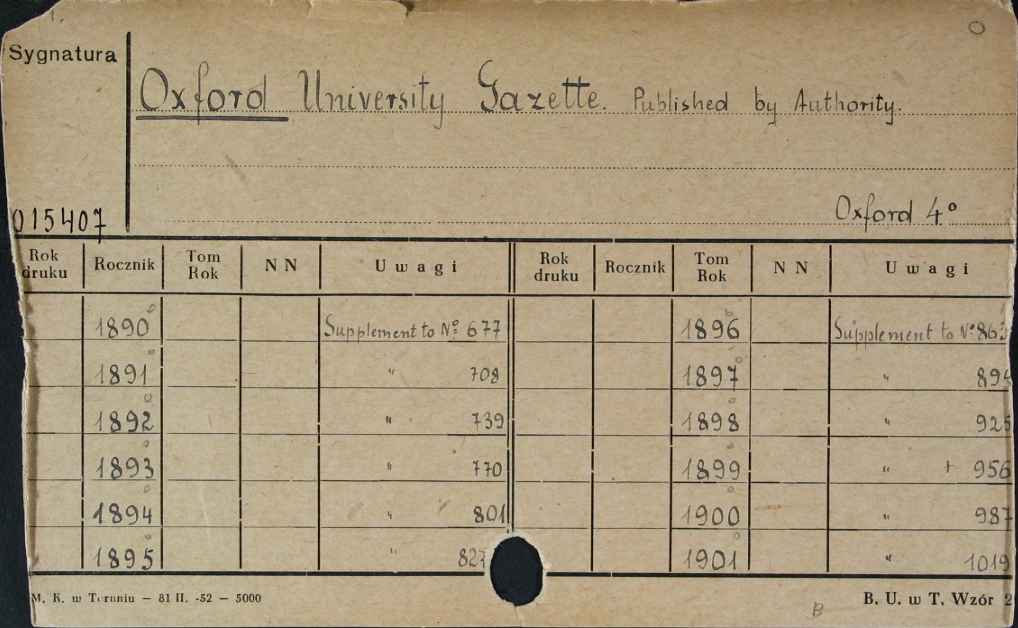 Sygnatura
Oxford University Gazette. Published by Authority.
015407
Oxford 4°
Rok druku Rocznik Tom Rok N N Uwagi Rok druku Rocznik Tom Rok N N Uwagi
1890 Supplement to Nº 677 1896 Supplement to Nº 863
1891 " 708 1897 " 894
1892 " 739 1898 " 925
1893 " 770 1899 " 956
1894 " 801 1900 " 987
1895 " 1901 " 1019
M. K. w Toruniu — 81 II. -52 — 5000
B. U. w T. Wzór 2
B